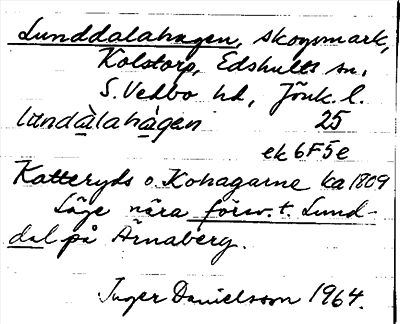 Lunddalahagen, skogsmark,
Kolstorp, Edshults sn,
S. Vedbo hd, Jönk. l.
lundàlahàgen 25
ek 6F5e
Katteryds o. Kohagarne ka 1809
Läge nära försv. t. Lund-
dal på Arnaberg.
Inger Danielsson 1964.